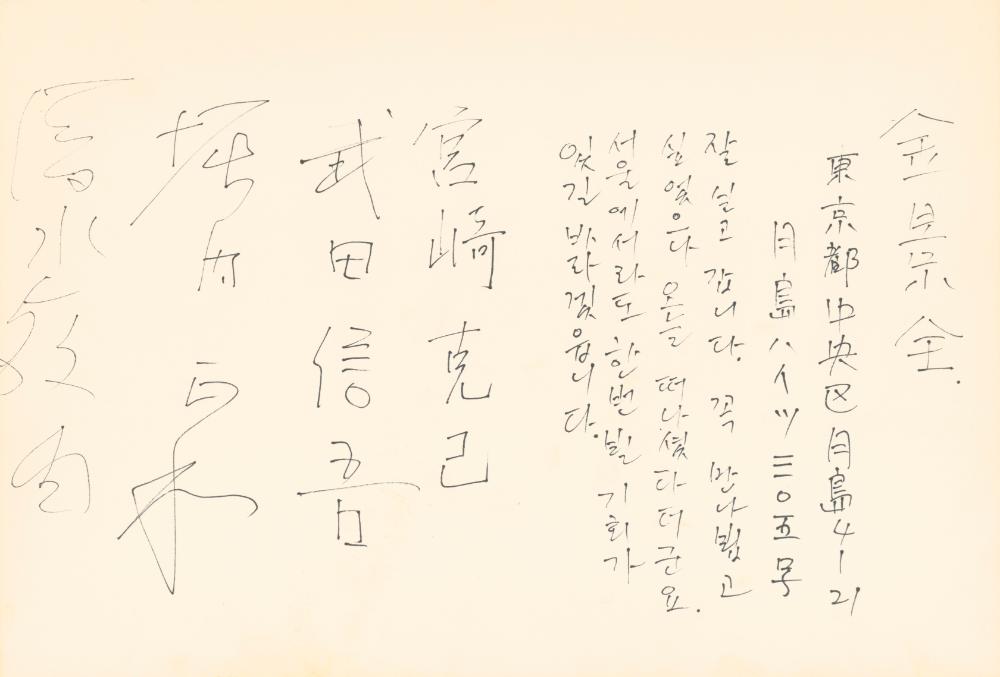 金景全.
東京都中央区月島4-21
月島ハイツ三〇五号
잘 쉬고 갑니다. 꼭 만나뵙고
싶었으나 오늘 떠나셨다더군요.
서울에서라도 한번 뵐 기회가
있길 바라겠읍니다.
宮崎克己
武田信吾
堀内正和
清水敏男